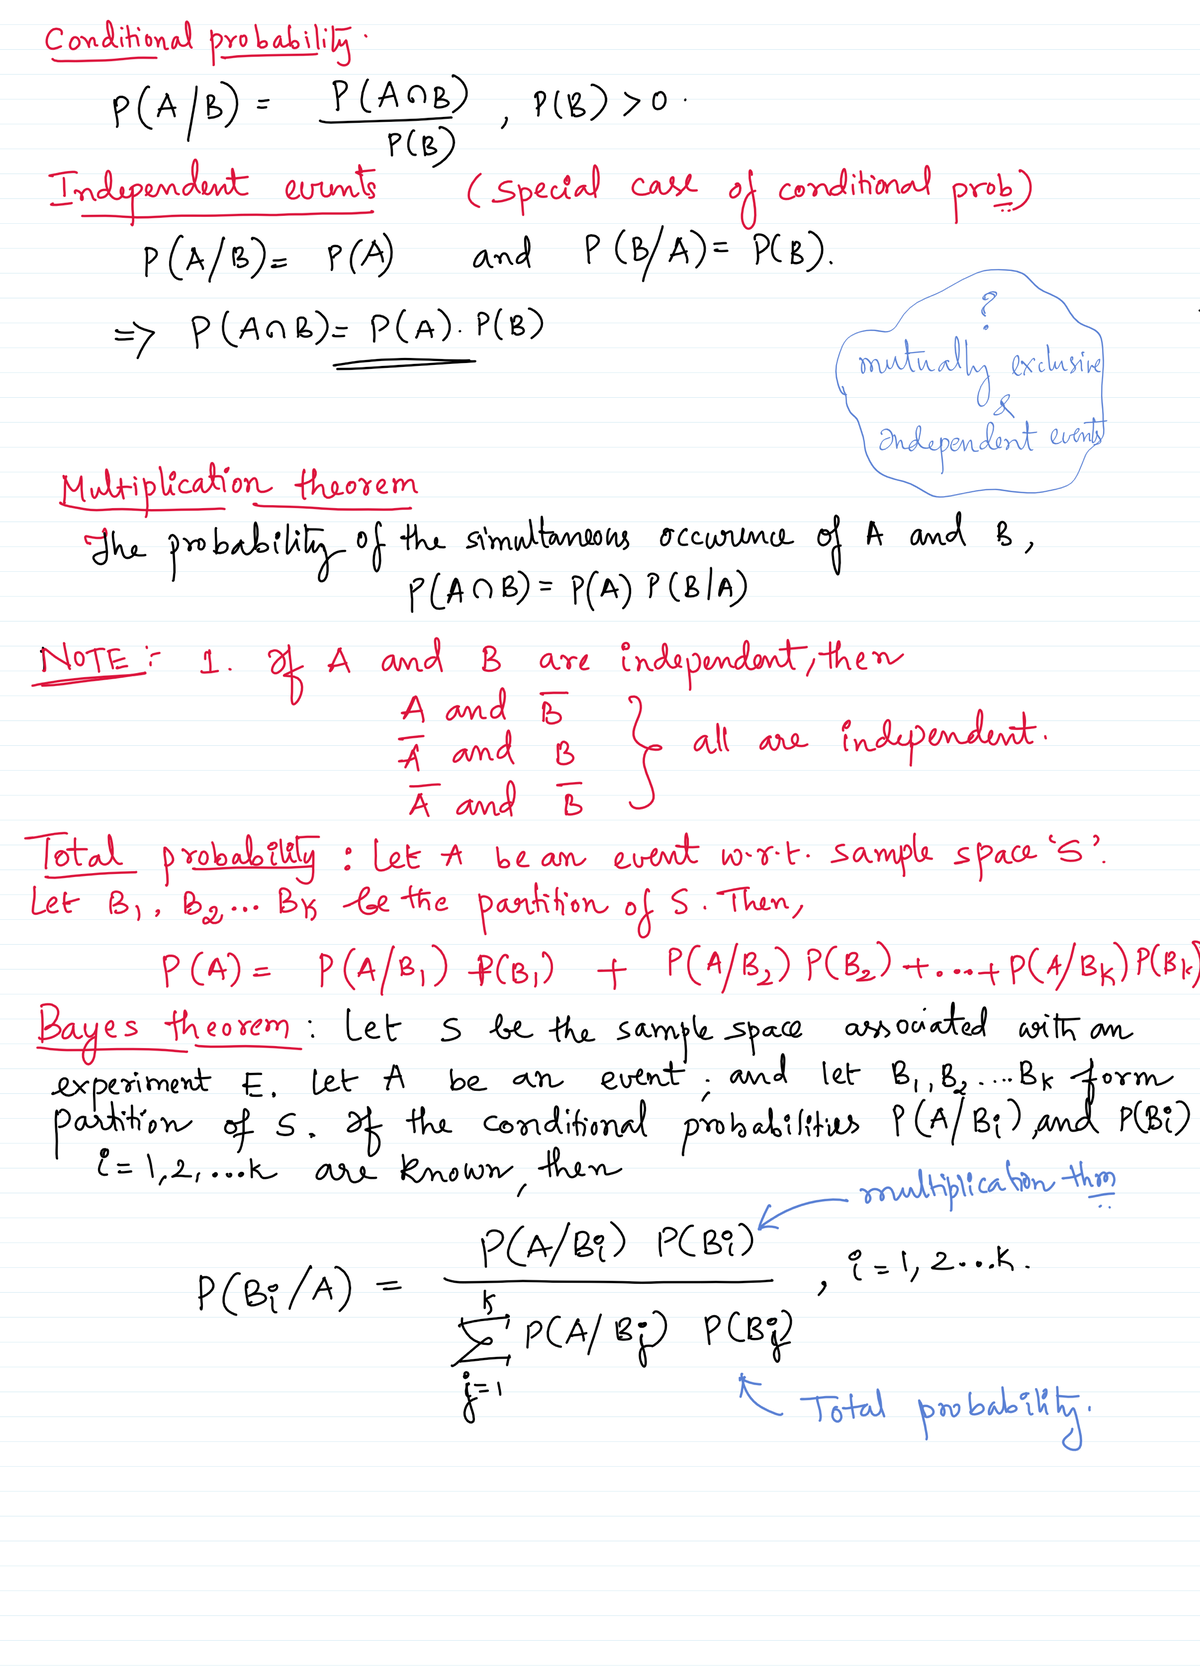 Conditional probability.
P(A/B) = P(A∩B) / P(B) , P(B) > 0.
Independent events (Special case of conditional prob)
P(A/B) = P(A) and P(B/A) = P(B).
=> P(A∩B) = P(A). P(B)
?
mutually exclusive
&
Independent events
Multiplication theorem
The probability of the simultaneous occurence of A and B,
P(A∩B) = P(A) P(B|A)
NOTE :- 1. If A and B are independent, then
A and B̅
A̅ and B
A̅ and B̅
} all are independent.
Total probability : Let A be an event w.r.t. sample space 'S'.
Let B₁, B₂ ... Bk be the partition of S. Then,
P(A) = P(A/B₁) P(B₁) + P(A/B₂) P(B₂) + .... + P(A/Bk) P(Bk)
Bayes theorem : Let S be the sample space associated with an
experiment E. Let A be an event. and let B₁, B₂ .... Bk form
partition of S. If the conditional probabilities P(A/Bi) and P(Bi)
i = 1,2,...k are known, then
multiplication thm
P(Bi/A) = P(A/Bi) P(Bi) / ∑_{j=1}^{k} P(A/Bj) P(Bj) , i = 1, 2...k.
Total probability.